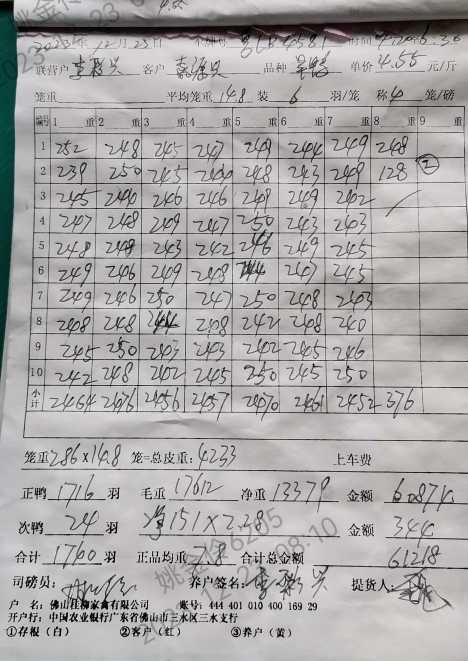 2023年12月23日 车牌号 时间
联营户 李彩兴 客户 品种 单价 4.55 元/斤
笼重 平均笼重 14.8 装 6 羽/笼 称 4 笼/磅
编号 1 重 2 重 3 重 4 重 5 重 6 重 7 重 8 重 9 重
1 252 248 245 247 249 244 249 248
2 239 250 245 240 248 243 249 128 ②
3 245 240 246 246 248 249 242
4 247 248 249 247 250 243 243
5 248 248 243 242 246 249 245
6 249 246 249 248 244 247 245
7 249 246 250 247 250 248 243
8 248 248 244 248 242 248 240
9 245 250 243 243 242 245 246
10 242 248 242 245 250 245 250
小计 2464 2476 2456 2457 2470 2461 2452 376
笼重 286×14.8 笼=总皮重: 4233 上车费
正鸭 1716 羽 毛重 17612 净重 13379 金额 60874
次鸭 24 羽 净151×2.28 金额 344
合计 1760 羽 正品均重 7.8 合计总金额 61218
司磅员: 养户签名: 李彩兴 提货人:
户 名: 佛山佳柳家禽有限公司 账号: 444 401 010 400 169 29
开户行: 中国农业银行广东省佛山市三水区三水支行
①存根（白） ②客户（红） ③养户（黄）
姚金伶6205